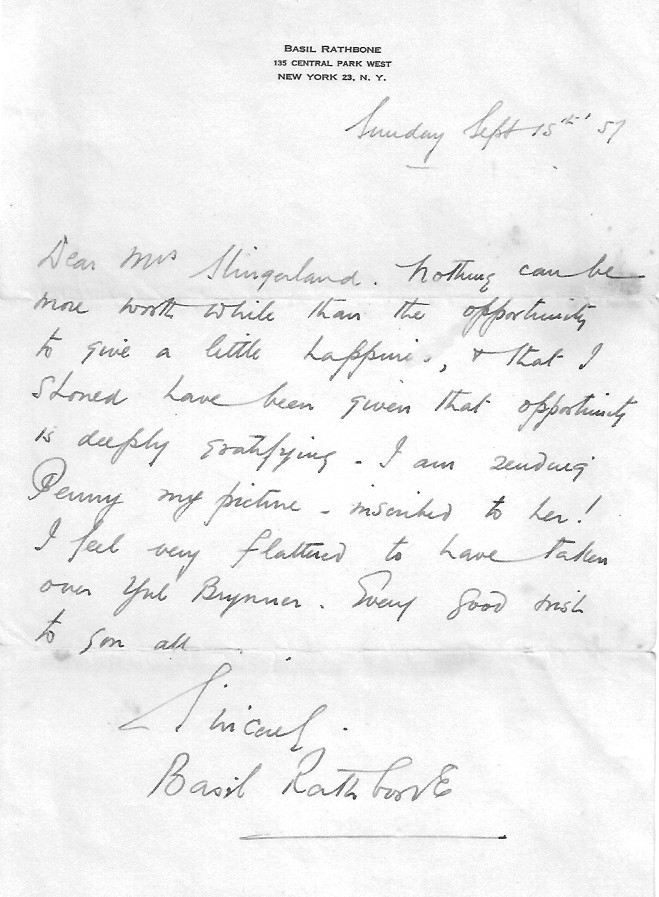 BASIL RATHBONE
135 CENTRAL PARK WEST
NEW YORK 23, N. Y.
Sunday Sept 15th 57
Dear Mrs Slingerland. Nothing can be
more worth while than the opportunity
to give a little happiness, & that I
should have been given that opportunity
is deeply gratifying - I am sending
Penny my picture - inscribed to her!
I feel very flattered to have taken
over Yul Brynner. Every good wish
to you all
Sincerely.
Basil Rathbone